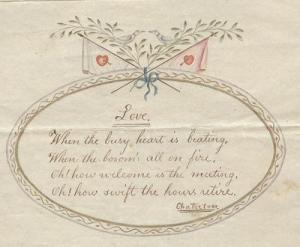 Love.
When the busy heart is beating,
When the bosom's all on fire,
Oh! how welcome is the meeting,
Oh! how swift the hours retire.
Chatterton